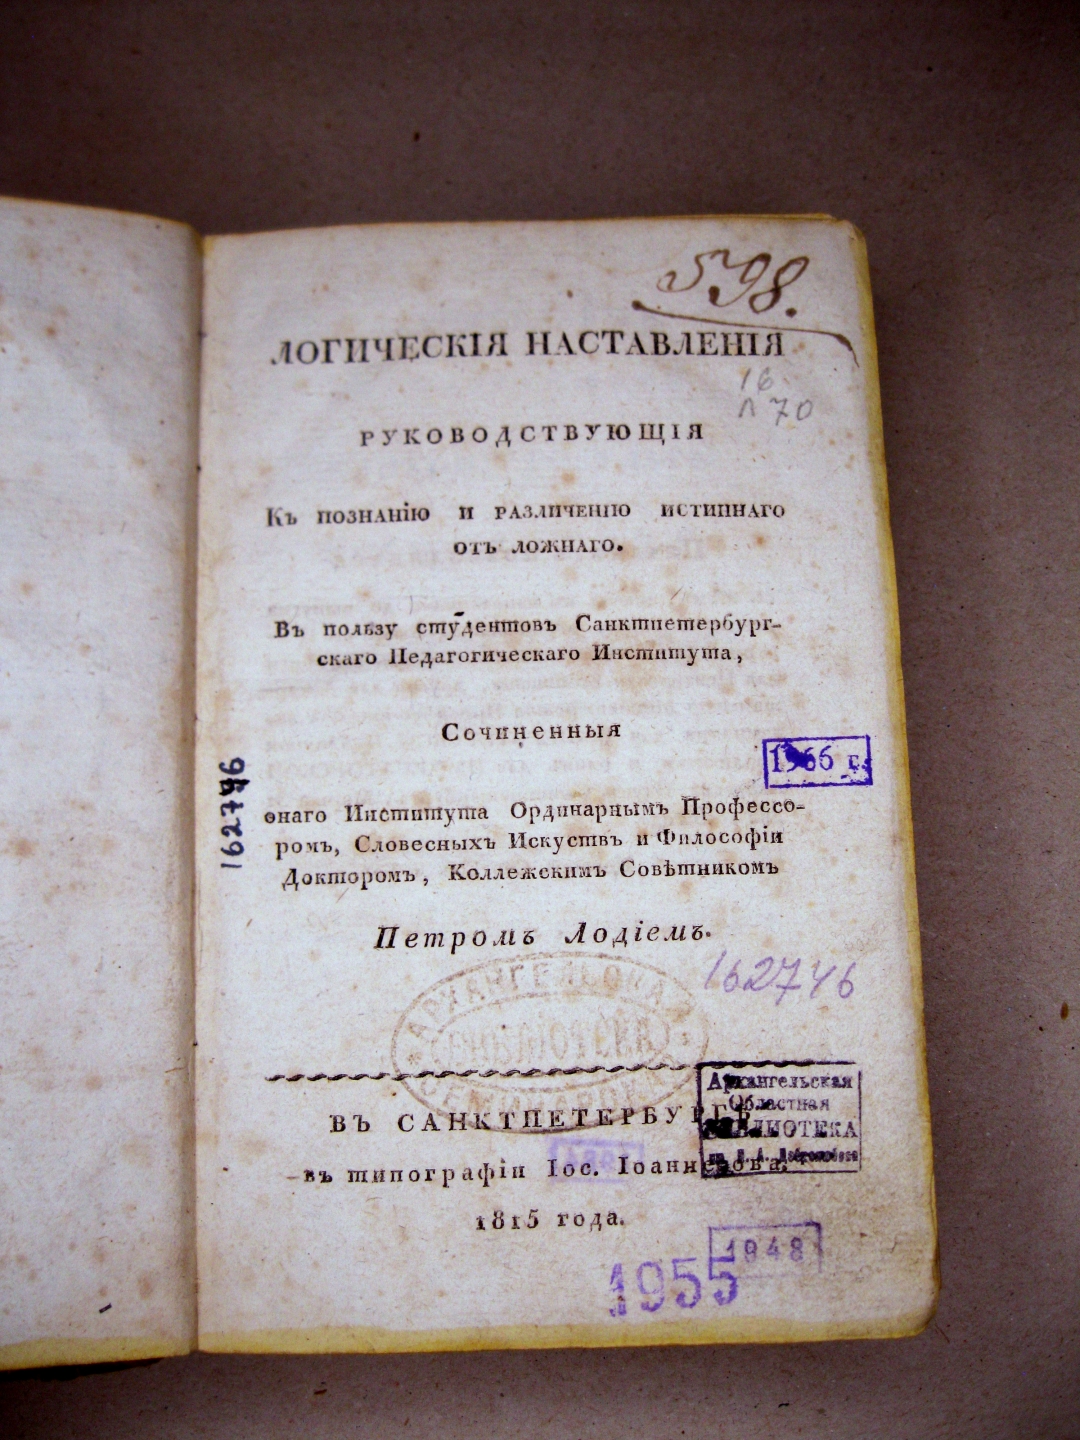 598.
ЛОГИЧЕСКІЯ НАСТАВЛЕНІЯ
16
Л 70
РУКОВОДСТВУЮЩІЯ
Къ познанію и различенію истиннаго
отъ ложнаго.
Въ пользу студентовъ Санктпетербург-
скаго Педагогическаго Института,
Сочиненныя
1966 г.
162746
онаго Института Ординарнымъ Профессо-
ромъ, Словесныхъ Искуствъ и Философіи
Докторомъ, Коллежскимъ Совѣтникомъ
Петромъ Лодіемъ.
162746
Архангельская
Областная
БИБЛИОТЕКА
ВЪ САНКТПЕТЕРБУРГѢ
въ типографіи Іос. Іоаннесова.
1815 года.
1948
1955